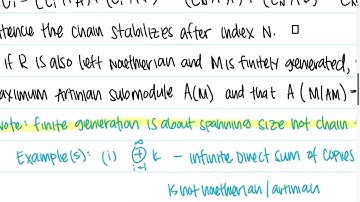 Hence the chain stabilizes after index N. □
if R is also left noetherian and M is finitely generated,
maximum Artinian submodule A(M) and that A(M/AM) =
note: finite generation is about spanning size not chain
Example(s): (i) ⊕ k - infinite direct sum of copies
∞
i=1
is not noetherian / artinian